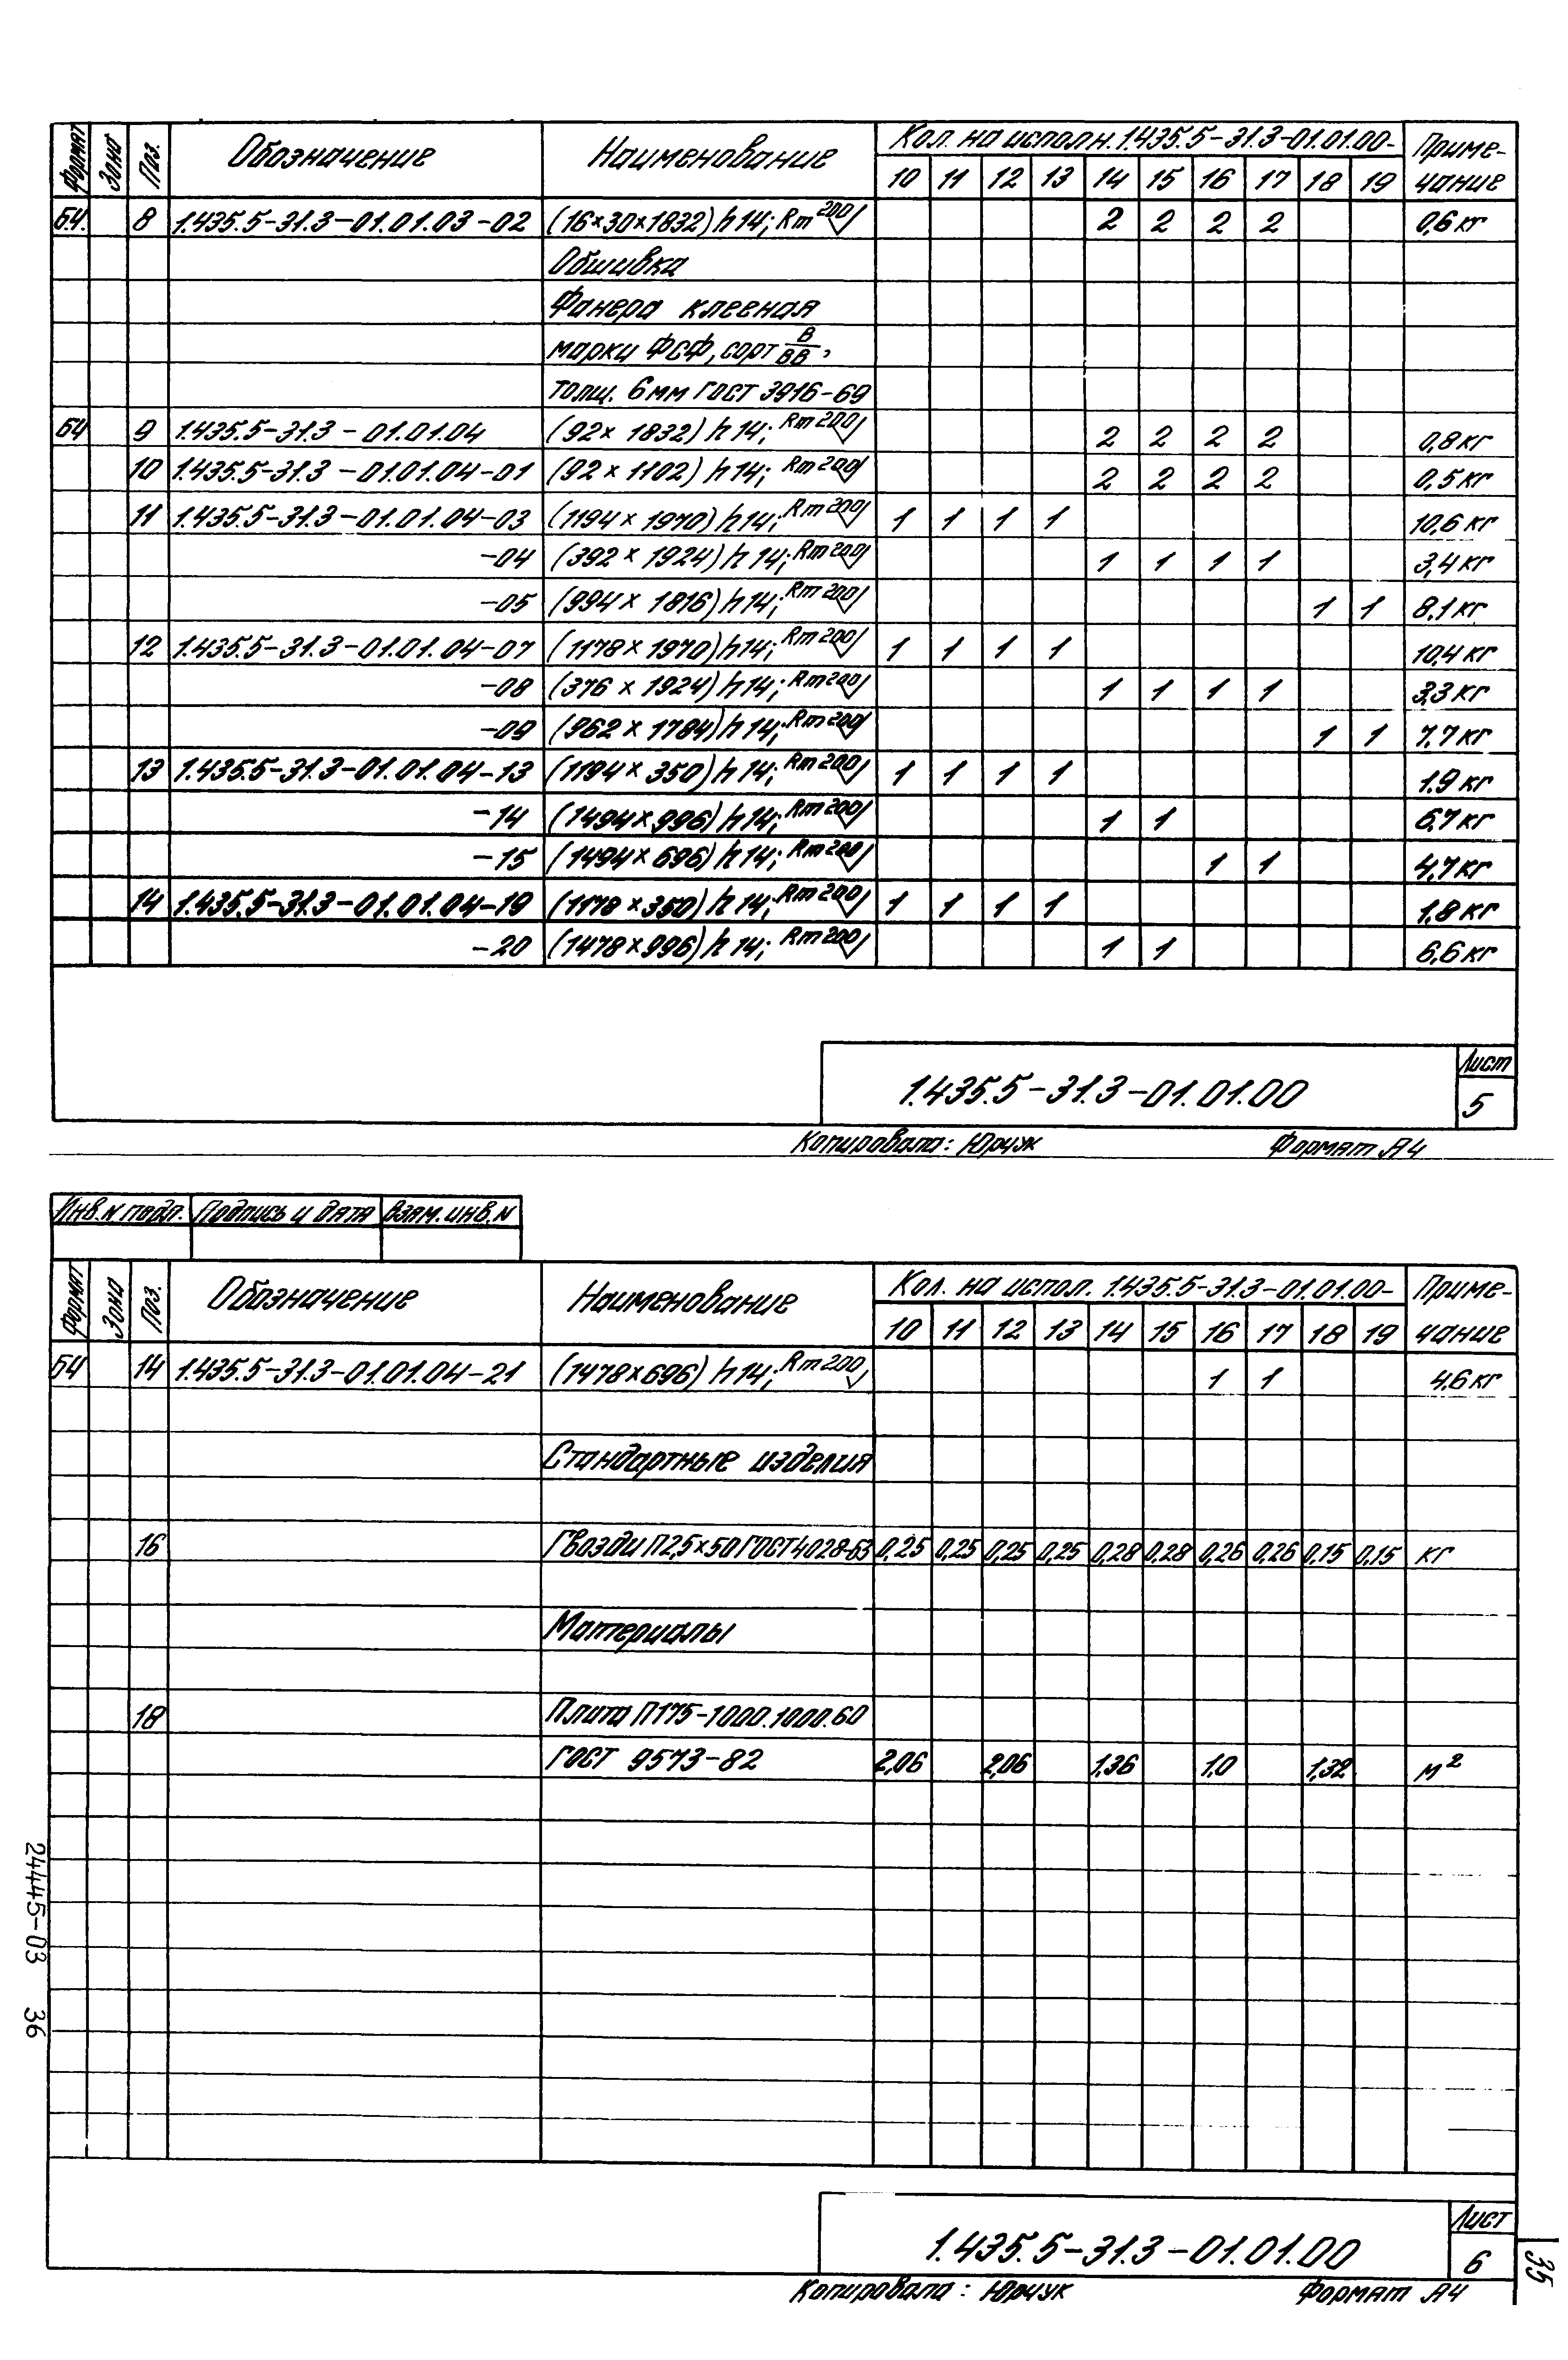 Формат Зона Поз. Обозначение Наименование Кол. на исполн. 1.435.5-31.3-01.01.00- Приме-
10 11 12 13 14 15 16 17 18 19 чание
Б4. 8 1.435.5-31.3-01.01.03-02 (16×30×1832) h14; Rm 200 2 2 2 2 0,6 кг
Обшивка
Фанера клееная
марки ФСФ, сорт В/ВВ,
толщ. 6мм ГОСТ 3916-69
Б4 9 1.435.5-31.3-01.01.04 (92×1832) h14; Rm 200 2 2 2 2 0,8 кг
10 1.435.5-31.3-01.01.04-01 (92×1102) h14; Rm 200 2 2 2 2 0,5 кг
11 1.435.5-31.3-01.01.04-03 (1194×1970) h14; Rm 200 1 1 1 1 10,6 кг
-04 (392×1924) h14; Rm 200 1 1 1 1 3,4 кг
-05 (994×1816) h14; Rm 200 1 1 8,1 кг
12 1.435.5-31.3-01.01.04-07 (1178×1970) h14; Rm 200 1 1 1 1 10,4 кг
-08 (376×1924) h14; Rm 200 1 1 1 1 3,3 кг
-09 (962×1784) h14; Rm 200 1 1 7,7 кг
13 1.435.5-31.3-01.01.04-13 (1194×350) h14; Rm 200 1 1 1 1 1.9 кг
-14 (1494×996) h14; Rm 200 1 1 6,7 кг
-15 (1494×696) h14; Rm 200 1 1 4,7 кг
14 1.435.5-31.3-01.01.04-19 (1178×350) h14; Rm 200 1 1 1 1 1,8 кг
-20 (1478×996) h14; Rm 200 1 1 6,6 кг
1.435.5-31.3-01.01.00 Лист
5
Копировала: Юрчук Формат А4
Инв. N подл. Подпись и дата Взам. инв. N
Формат Зона Поз. Обозначение Наименование Кол. на испол. 1.435.5-31.3-01.01.00- Приме-
10 11 12 13 14 15 16 17 18 19 чание
Б4 14 1.435.5-31.3-01.01.04-21 (1478×696) h14; Rm 200 1 1 4,6 кг
Стандартные изделия
16 Гвозди П2,5×50 ГОСТ 4028-63 0,25 0,25 0,25 0,25 0,28 0,28 0,26 0,26 0,15 0,15 кг
Материалы
18 Плита П175-1000.1000.60
ГОСТ 9573-82 2,06 2,06 1,36 1,0 1,32 м²
24445-03 36
1.435.5-31.3-01.01.00 Лист
6
35
Копировала: Юрчук Формат А4